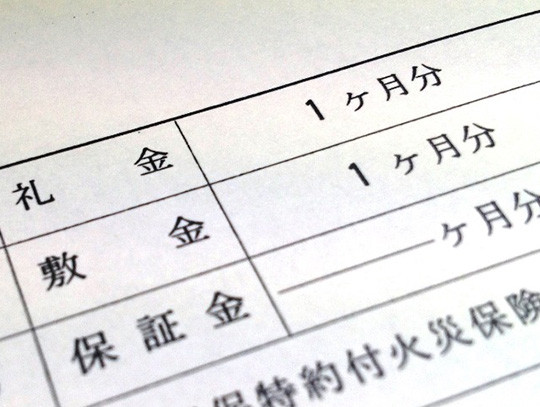 礼金 1ヶ月分
敷金 1ヶ月分
保証金 ヶ月分
保特約付火災保険